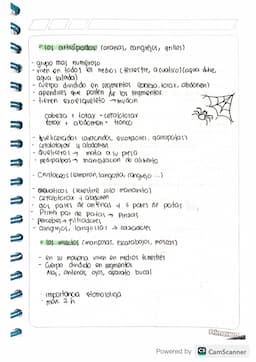 * los artrópodos (arañas, cangrejos, grillos)
- grupo mas numeroso
- viven en todos los medios (terrestre, acuatico) (agua dulce, agua salada)
- cuerpo dividido en segmentos (cabeza, torax, abdomen)
- apendices que parten de los segmentos
- tienen exoesqueleto → mudan
cabeza + torax - cefalotorax
torax + abdomen - tronco
- quelicerados (aracnidos, escorpiones, garrapatas)
- cefalotorax y abdomen
- queliceros → mata a su presa
- pedipalpos → manipulacion de alimento
Crustaceos (camaron, langosta, cangrejo ...)
- acuaticos (terrestre solo
- cefalotorax + abdomen
- dos pares de antenas y 5 pares de patas
- Primer par de patas → Pinzas
- percebes → filtradores
- cangrejos, langostillas →
* los insectos (mariposas, escarabajos, moscas)
- en su mayoria viven en medios terrestres
- Cuerpo dividido en segmentos
antenas, ojos, aparato bucal
- importancia
Powered by CS CamScanner